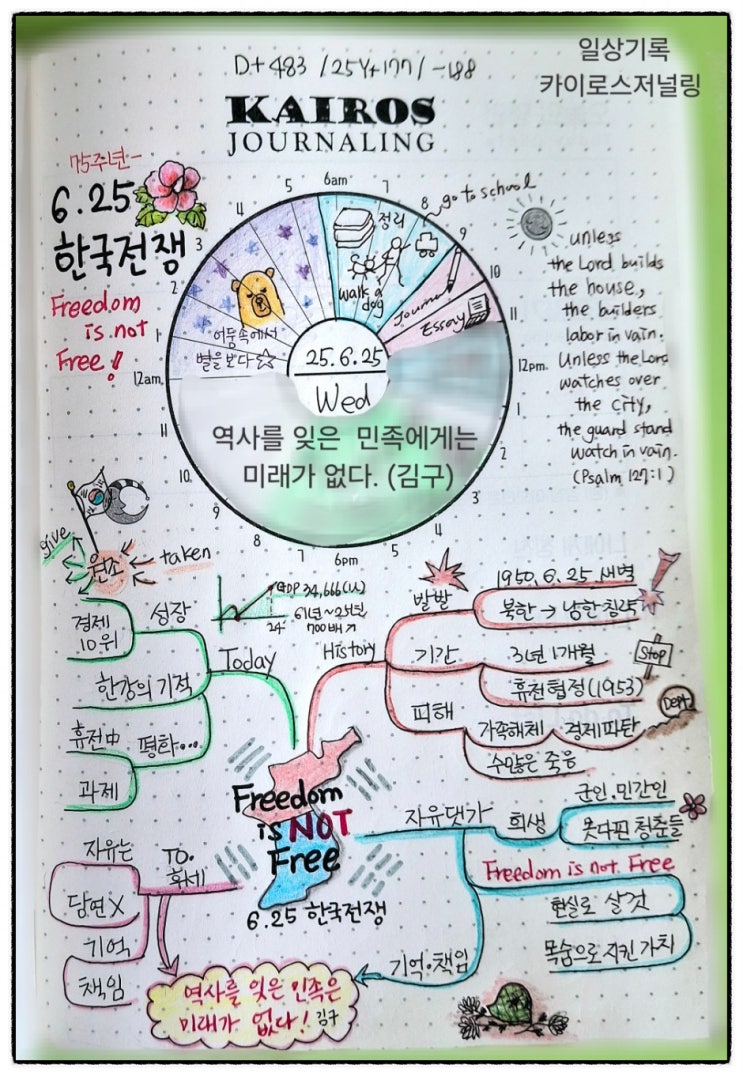 일상기록
카이로스저널링
D+483 / 25Y+177 / -188
KAIROS
JOURNALING
75주년-
6.25
한국전쟁
Freedom
is not
Free!
6am
7
8
9
10
11
12pm
1
2
3
4
5
6pm
7
8
9
10
11
12am
1
2
3
4
5
정리
go to school
walk a
dog
Journal
Essay
어둠속에서
별을보다☆
25.6.25
Wed
역사를 잊은 민족에게는
미래가 없다. (김구)
unless
the Lord builds
the house,
the builders
labor in vain.
Unless the Lord
watches over
the city,
the guard stand
watch in vain.
(Psalm 127:1)
give
원조
taken
경제
10위
성장
GDP 34,666(U)
61년~25년
24'
700배↗
Today
한강의 기적
휴전中
평화...
과제
History
발발
1950. 6. 25 새벽
북한 → 남한 침략
기간
3년 1개월
Stop
휴전협정(1953)
피해
가족해체
경제파탄
Dept
수많은 죽음
Freedom
is NOT
Free
6.25 한국전쟁
자유댓가
희생
군인.민간인
못다핀 청춘들
Freedom is not Free
현실로 살것
목숨으로 지킨 가치
기억·책임
TO.
후세
자유는
당연X
기억
책임
역사를 잊은 민족은
미래가 없다! 김구